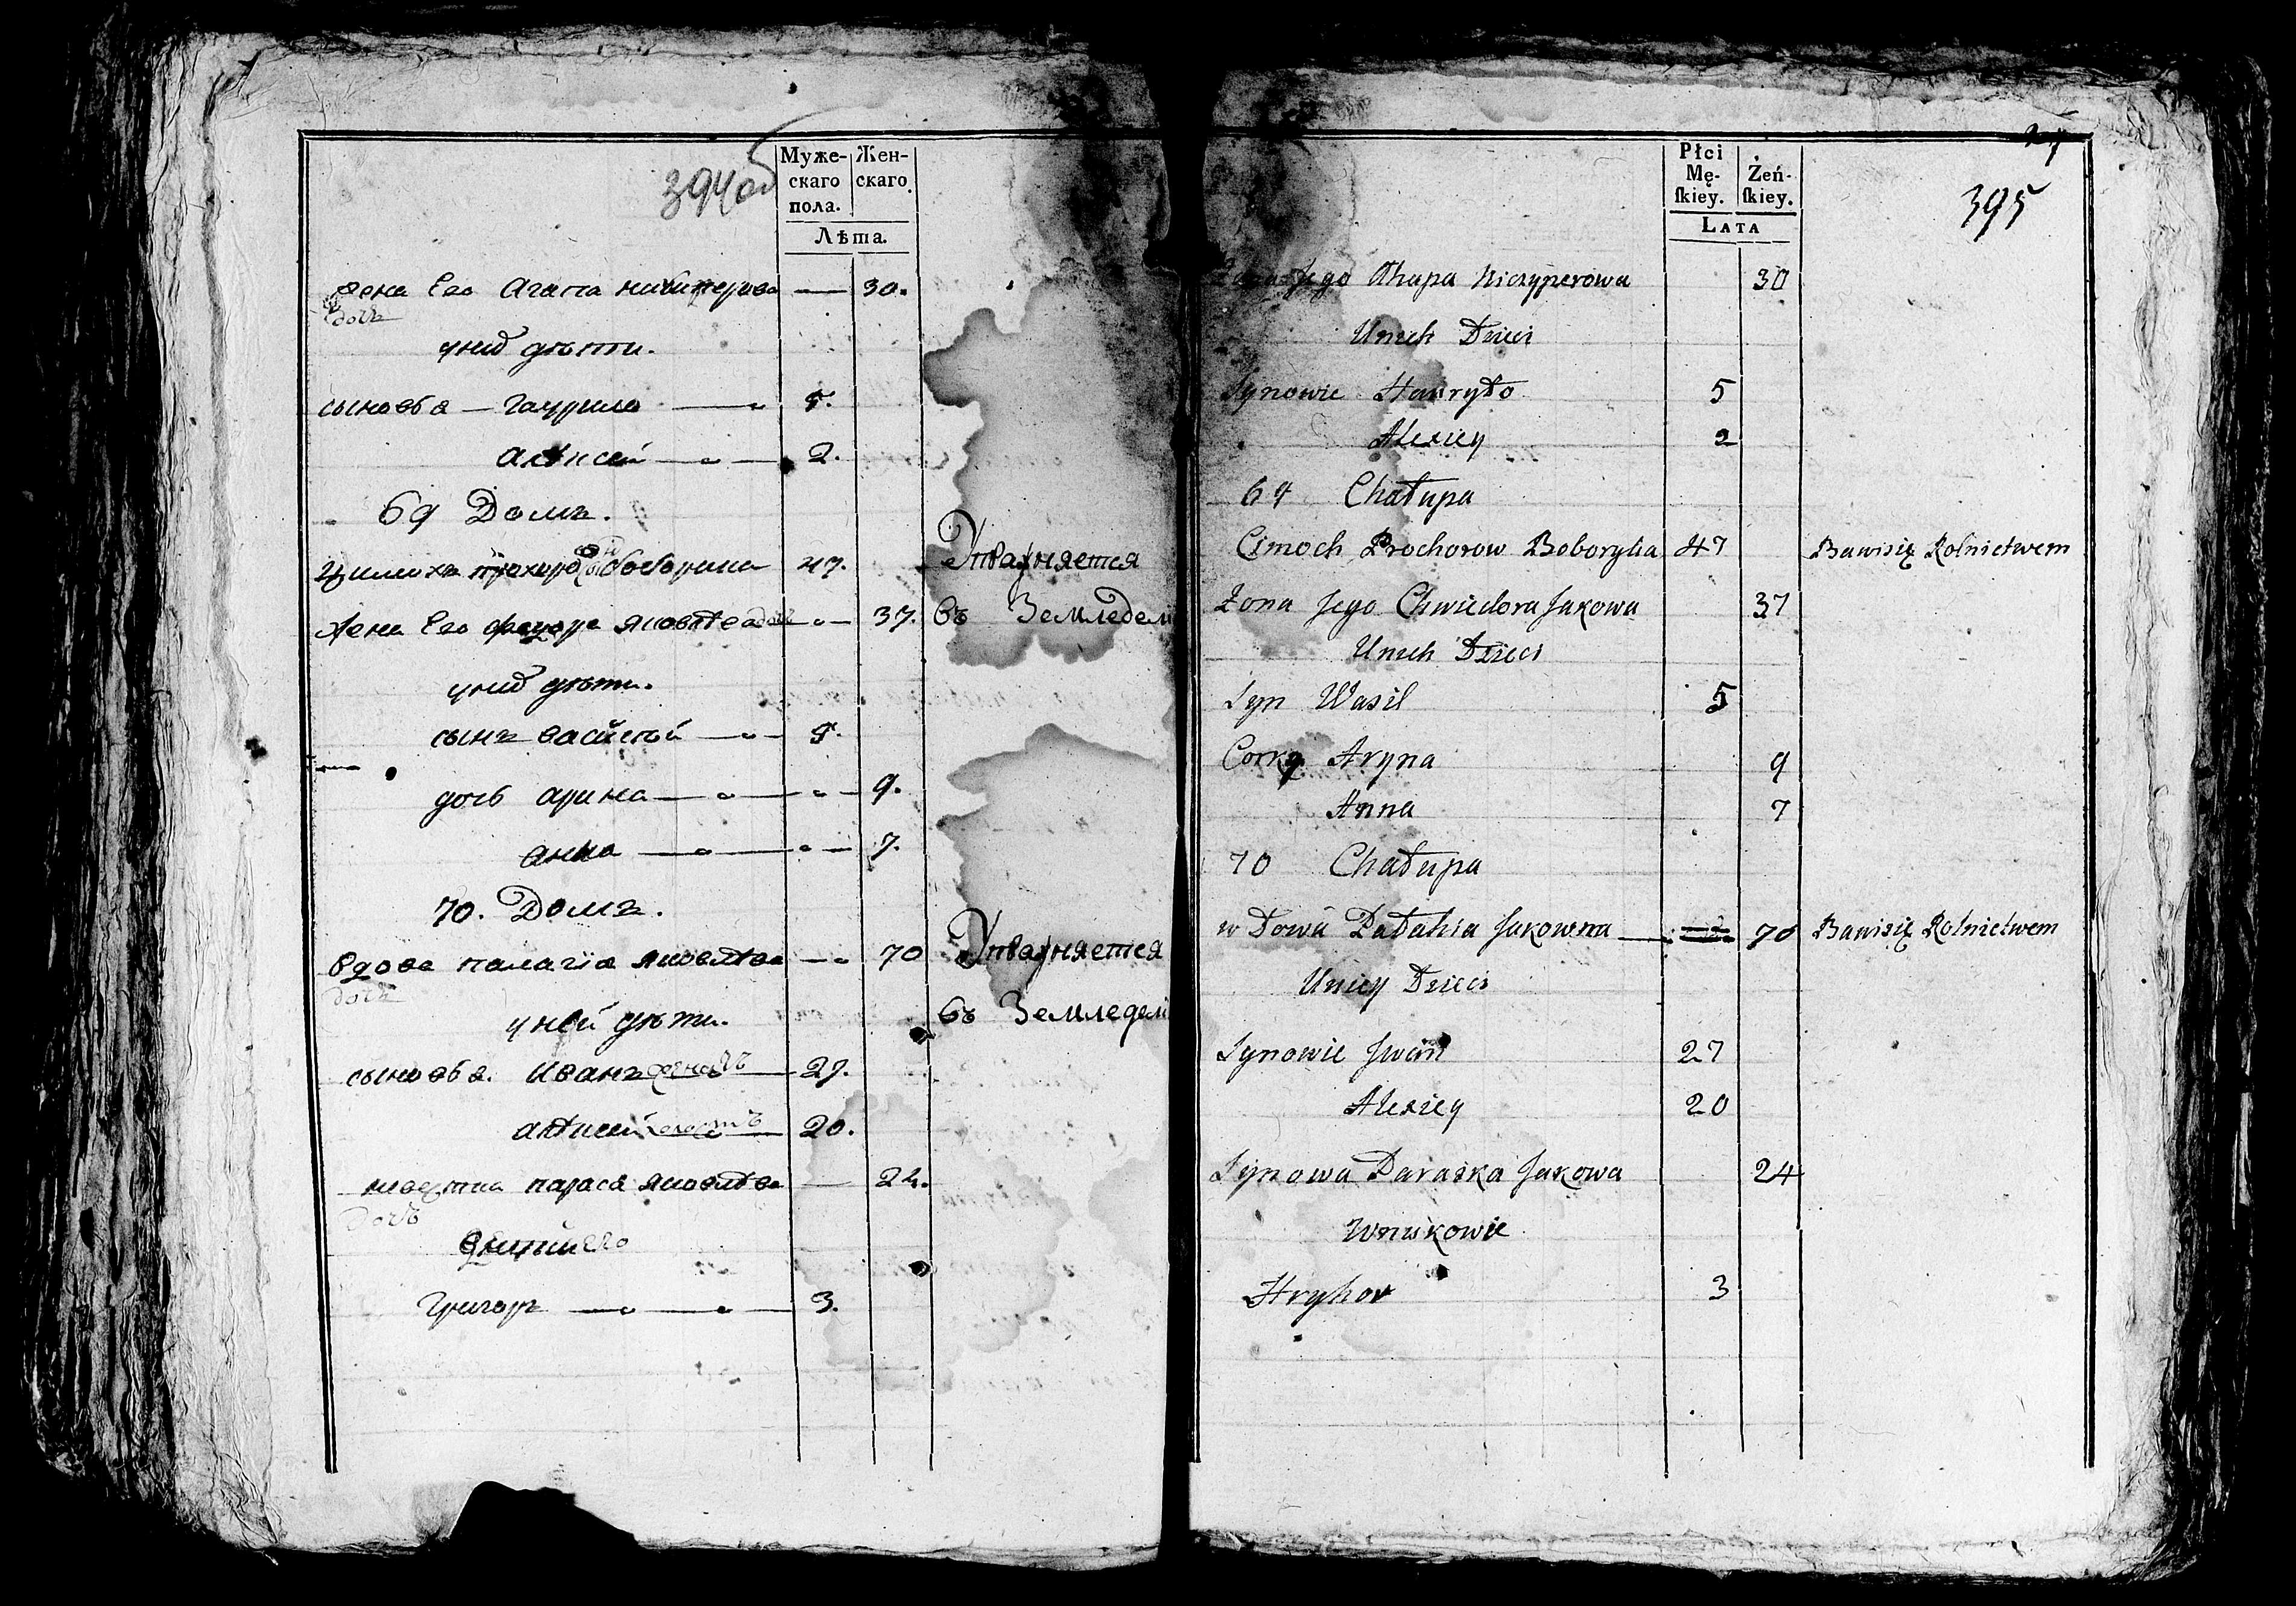 394об
Муже-
скаго
пола.
Жен-
скаго.
Лѣта.
жена Его Агапа никиперова — 30.
дочь
у них дѣти.
сыновья — гаурило — 5.
алѣксей — 2.
69 Домъ.
Цимохъ прохоровъ боборика 47. Упражняется
жена Его феодора яковлева дочь — 37. въ Земледели
у них дѣти.
сынъ василей — 5.
дочь арина — 9.
анна — 7.
70. Домъ.
вдова палагія яковлева — 70 Упражняется
дочь
у ней дѣти. въ Земледели
сыновья. Иванъ женатъ 27.
алѣксей холостъ 20.
невестка параса яковлева — 24.
дочь
внуки его
григоръ — 3.
27
395
Płci
Mę-
skiey.
Żeń-
skiey.
LATA
Żona Jego Ahapa Niczyperowa 30
Unich Dzieci
Synowie Hawryło 5
Alexiey 2
69 Chałupa
Cimoch Prochorow Boboryka 47 Bawisię Rolnictwem
Żona Jego Chwiedora Jakowa 37
Unich Dzieci
Syn Wasil 5
Corką Aryna 9
Anna 7
70 Chałupa
wdowa Pałahia Jakowna — 70 Bawisię Rolnictwem
Uniey Dzieci
Synowie Jwan 27
Alexiey 20
Synowa Paraska Jakowa 24
Wnukowie
Hryhor 3